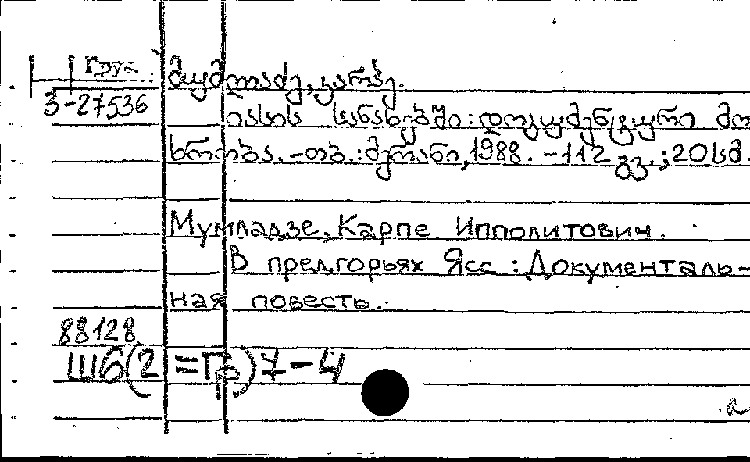 Груз.
მუმლაძე, კარპე.
3-27536
იასის სანახებში: დოკუმენტური მო
თხრობა. - თბ.: მერანი, 1988. - 112 გვ.; 20 სმ.
Мумладзе, Карпе Ипполитович.
В предгорьях Ясс: Документаль-
ная повесть.
88128
Ш6(2=Гр)7-4